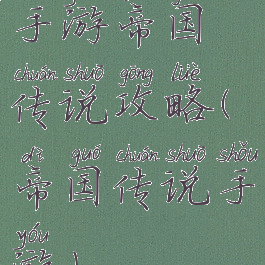 手游帝国
chuán shuō gōng lüè
传说攻略(
dì guó chuán shuō shǒu
帝国传说手
yóu
游)